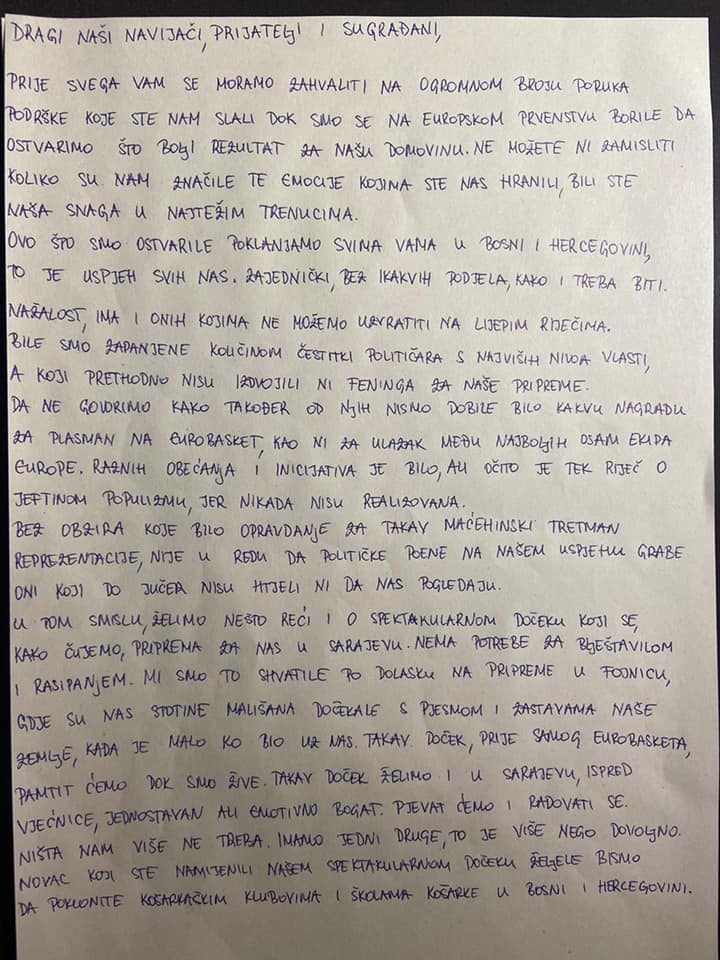 DRAGI NAŠI NAVIJAČI, PRIJATELJI I SUGRAĐANI,
PRIJE SVEGA VAM SE MORAMO ZAHVALITI NA OGROMNOM BROJU PORUKA
PODRŠKE KOJE STE NAM SLALI DOK SMO SE NA EUROPSKOM PRVENSTVU BORILE DA
OSTVARIMO ŠTO BOLJI REZULTAT ZA NAŠU DOMOVINU. NE MOŽETE NI ZAMISLITI
KOLIKO SU NAM ZNAČILE TE EMOCIJE KOJIMA STE NAS HRANILI, BILI STE
NAŠA SNAGA U NAJTEŽIM TRENUCIMA.
OVO ŠTO SMO OSTVARILE POKLANJAMO SVIMA VAMA U BOSNI I HERCEGOVINI,
TO JE USPJEH SVIH NAS. ZAJEDNIČKI, BEZ IKAKVIH PODJELA, KAKO I TREBA BITI.
NAŽALOST, IMA I ONIH KOJIMA NE MOŽEMO UZVRATITI NA LIJEPIM RIJEČIMA.
BILE SMO ZAPANJENE KOLIČINOM ČESTITKI POLITIČARA S NAJVIŠIH NIVOA VLASTI,
A KOJI PRETHODNO NISU IZDVOJILI NI FENINGA ZA NAŠE PRIPREME.
DA NE GOVORIMO KAKO TAKOĐER OD NJIH NISMO DOBILE BILO KAKVU NAGRADU
ZA PLASMAN NA EUROBASKET, KAO NI ZA ULAZAK MEĐU NAJBOLJIH OSAM EKIPA
EUROPE. RAZNIH OBEĆANJA I INICIJATIVA JE BILO, ALI OČITO JE TEK RIJEČ O
JEFTINOM POPULIZMU, JER NIKADA NISU REALIZOVANA.
BEZ OBZIRA KOJE BILO OPRAVDANJE ZA TAKAV MAĆEHINSKI TRETMAN
REPREZENTACIJE, NIJE U REDU DA POLITIČKE POENE NA NAŠEM USPJEHU GRABE
ONI KOJI DO JUČER NISU HTJELI NI DA NAS POGLEDAJU.
U TOM SMISLU, ŽELIMO NEŠTO REĆI I O SPEKTAKULARNOM DOČEKU KOJI SE,
KAKO ČUJEMO, PRIPREMA ZA NAS U SARAJEVU. NEMA POTREBE ZA BLJEŠTAVILOM
I RASIPANJEM. MI SMO TO SHVATILE PO DOLASKU NA PRIPREME U FOJNICU,
GDJE SU NAS STOTINE MALIŠANA DOČEKALE S PJESMOM I ZASTAVAMA NAŠE
ZEMLJE, KADA JE MALO KO BIO UZ NAS. TAKAV DOČEK, PRIJE SAMOG EUROBASKETA,
PAMTIT ĆEMO DOK SMO ŽIVE. TAKAV DOČEK ŽELIMO I U SARAJEVU, ISPRED
VJEĆNICE, JEDNOSTAVAN ALI EMOTIVNO BOGAT. PJEVAT ĆEMO I RADOVATI SE.
NIŠTA NAM VIŠE NE TREBA. IMAMO JEDNI DRUGE, TO JE VIŠE NEGO DOVOLJNO.
NOVAC KOJI STE NAMIJENILI NAŠEM SPEKTAKULARNOM DOČEKU ŽELJELE BISMO
DA POKLONITE KOŠARKAŠKIM KLUBOVIMA I ŠKOLAMA KOŠARKE U BOSNI I HERCEGOVINI.